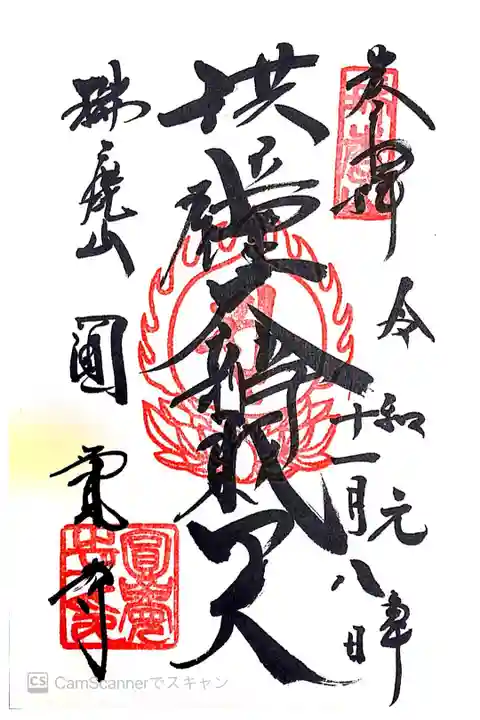 奉拝
令和元年
十一月八日
洪鐘大弁財天
瑞鹿山 圓覚寺
CS CamScannerでスキャン